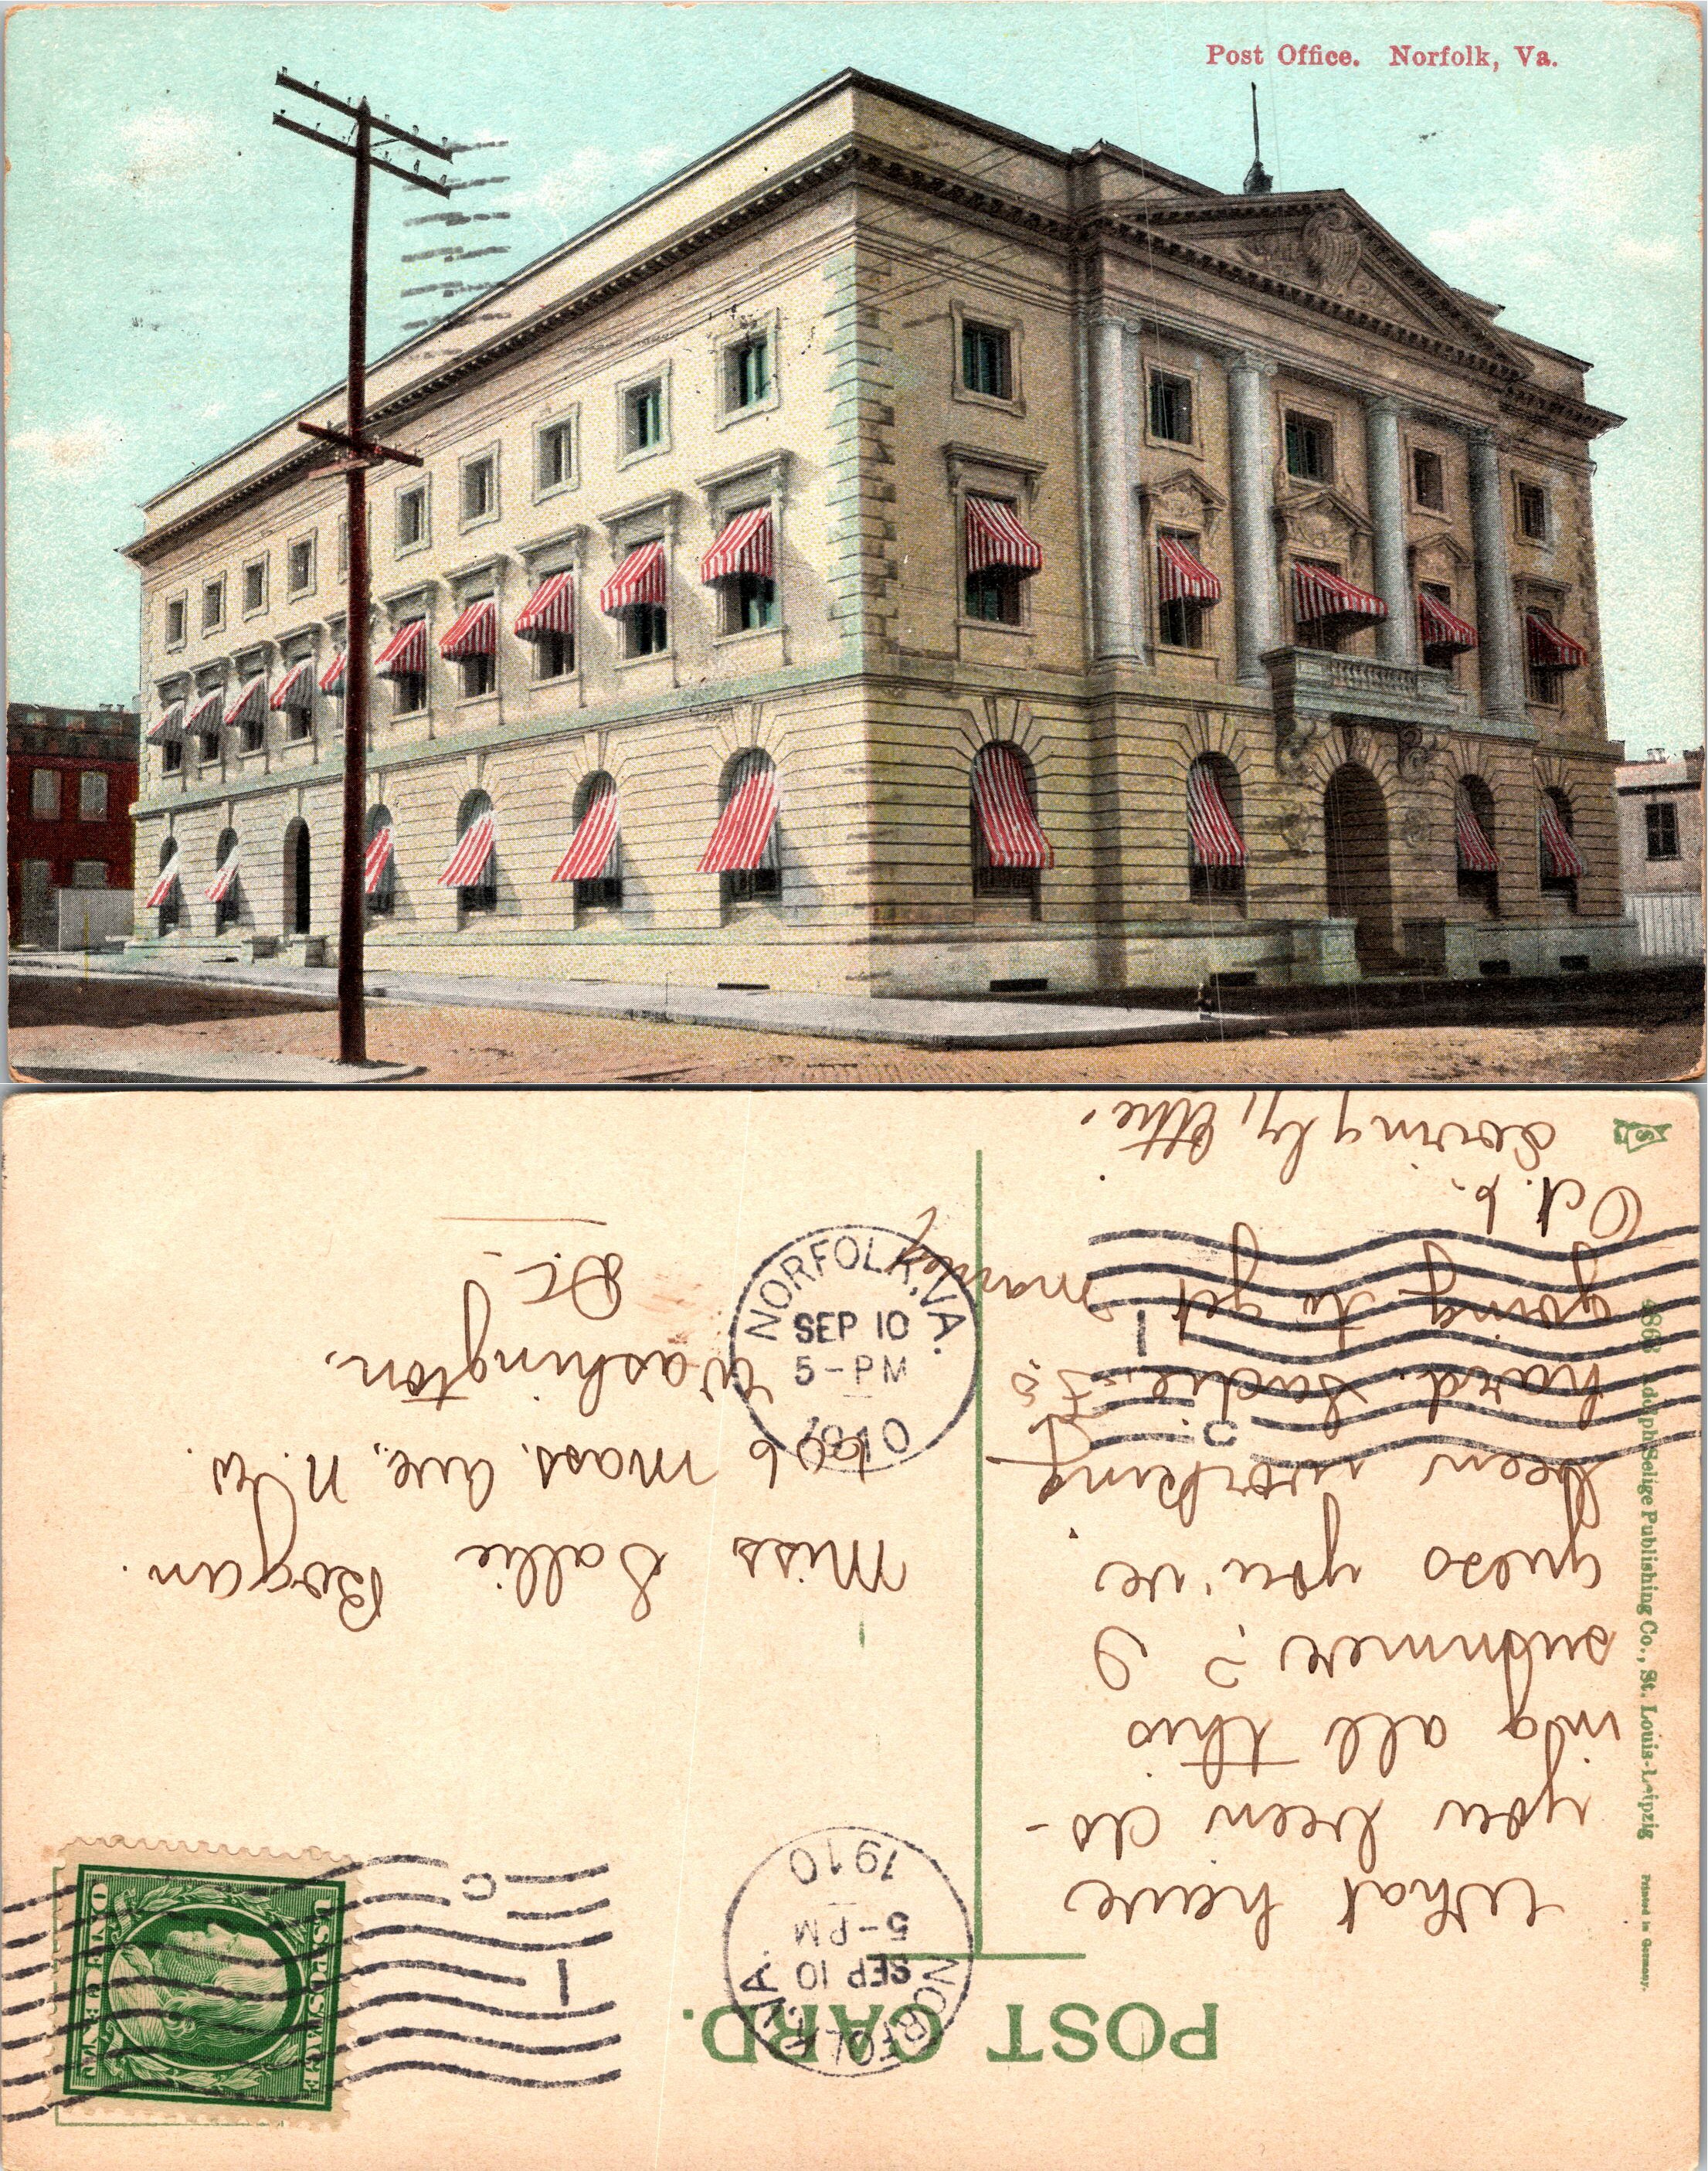 Post Office. Norfolk, Va.
POST CARD.
NORFOLK, VA.
SEP 10
5-PM
1910
C
1
U.S. POSTAGE
ONE CENT
What have
you been do-
ing all this
summer? I
guess you've
been working
hard. Sadie is
going to get married
Oct. 6.
Lovingly, Effie.
Miss Sallie Bogan.
Mass. Ave, N.W.
Washington,
D.C.
NORFOLK, VA.
SEP 10
5-PM
1910
C
1
Adolph Selige Publishing Co., St. Louis-Leipzig
Printed in Germany.
S